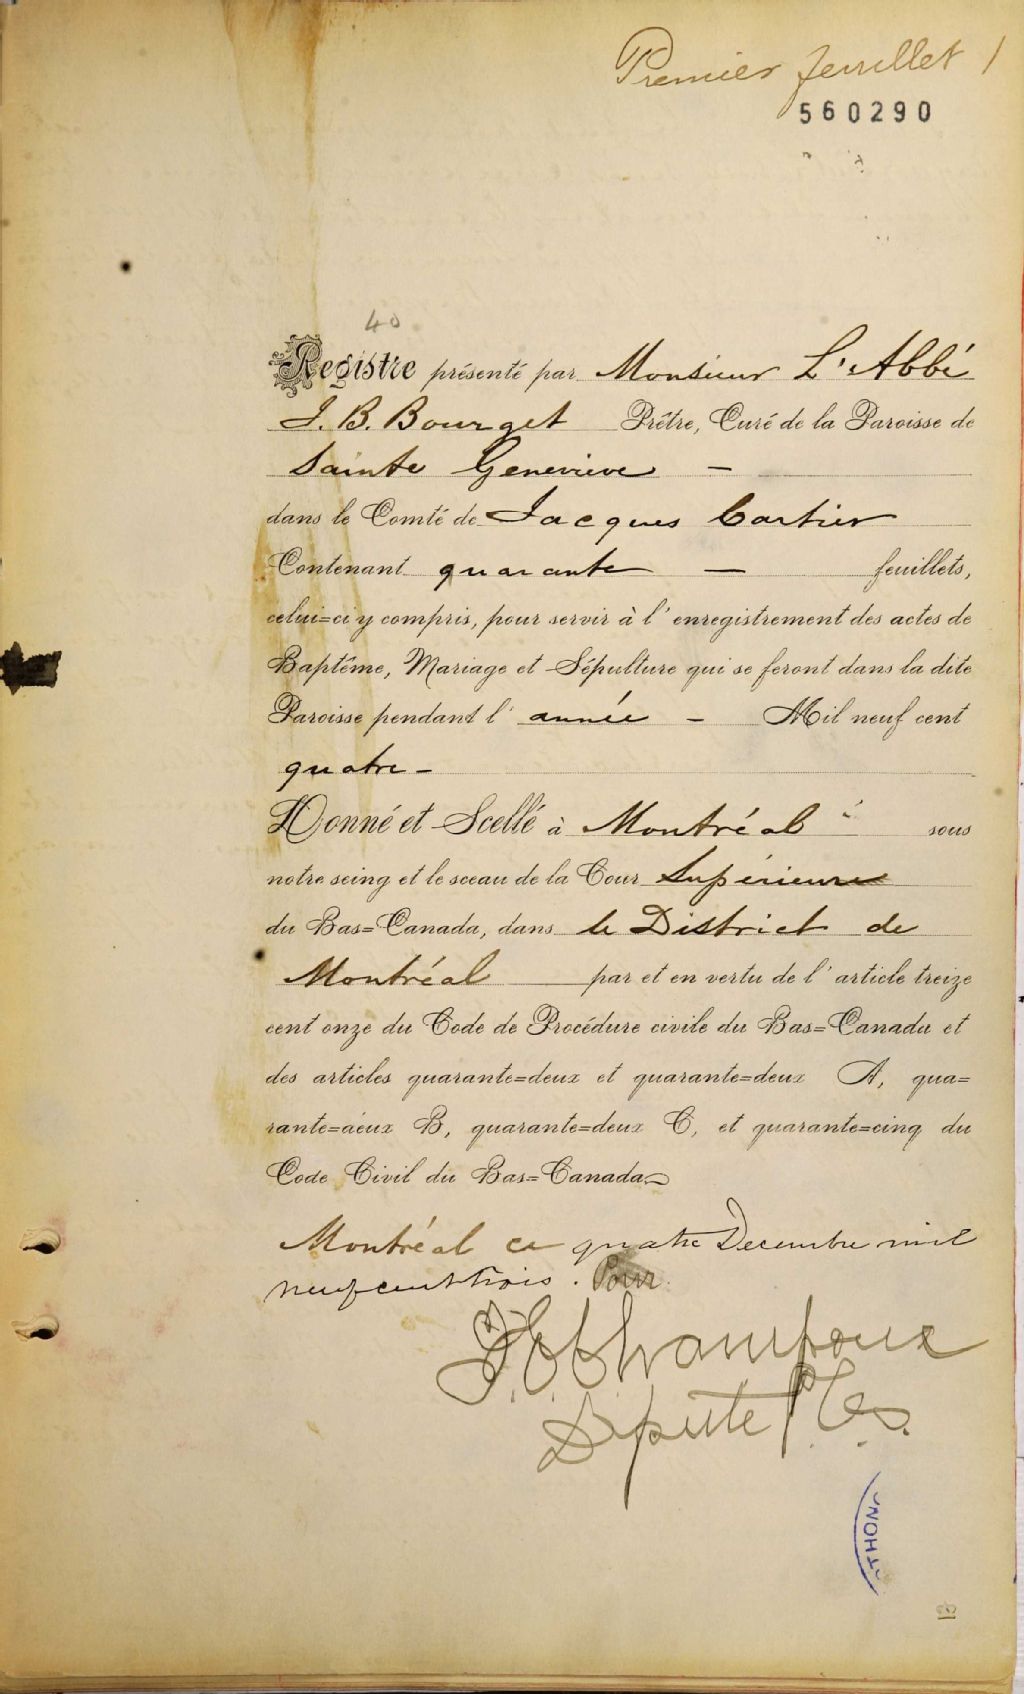 Premier feuillet 1
560290
40
Registre présenté par Monsieur L'Abbé
J. B. Bourget Prêtre, Curé de la Paroisse de
Sainte Geneviève —
dans le Comté de Jacques Cartier
Contenant quarante — feuillets,
celui=ci y compris, pour servir à l'enregistrement des actes de
Baptême, Mariage et Sépulture qui se feront dans la dite
Paroisse pendant l'année — Mil neuf cent
quatre —
Donné et Scellé à Montréal sous
notre seing et le sceau de la Cour Supérieure
du Bas=Canada, dans le District de
Montréal par et en vertu de l'article treize
cent onze du Code de Procédure civile du Bas=Canada et
des articles quarante=deux et quarante=deux A, qua=
rante=deux B, quarante=deux C, et quarante=cinq du
Code Civil du Bas=Canada
Montréal ce quatre Decembre mil
neuf cent trois. Pour
Champoux
Député P.C.S.